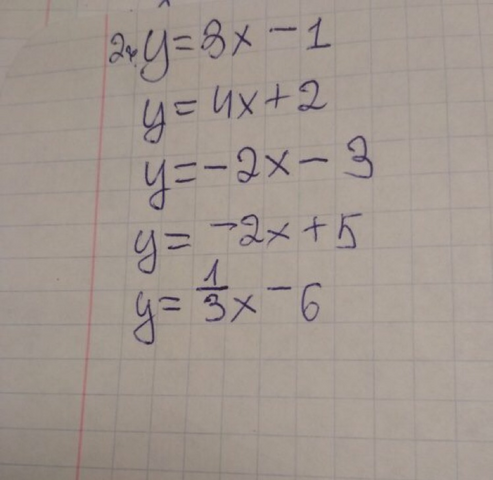 2. y = 3x - 1
y = 4x + 2
y = -2x - 3
y = -2x + 5
y = 1/3 x - 6